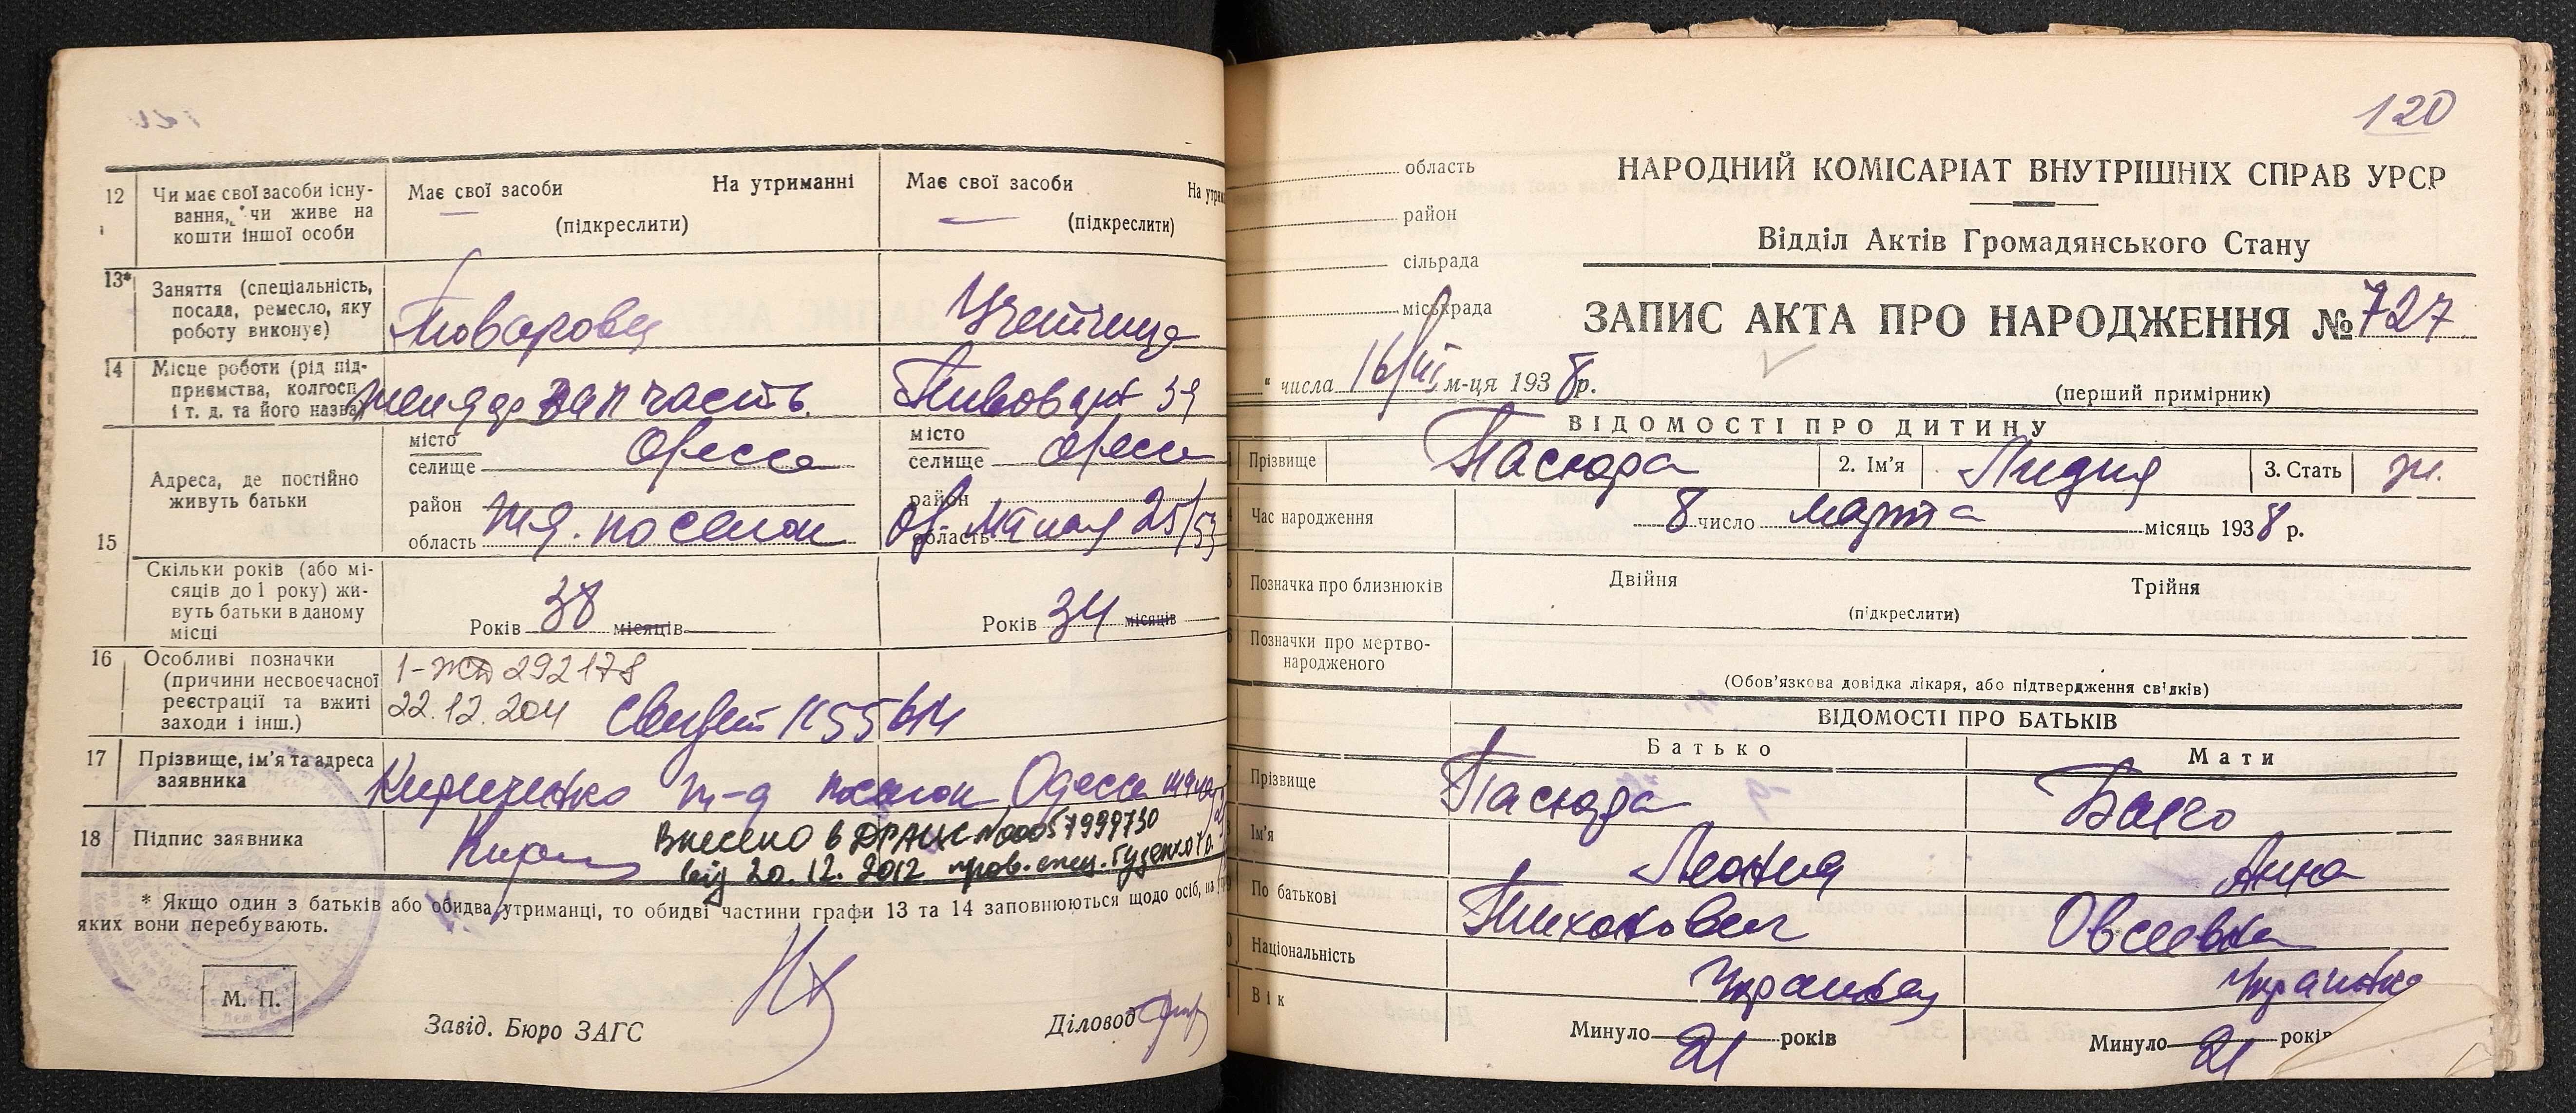 12 Чи має свої засоби існування, чи живе на кошти іншої особи
Має свої засоби На утриманні
(підкреслити)
Має свої засоби На утри
(підкреслити)
13* Заняття (спеціальність, посада, ремесло, яку роботу виконує)
Товаровед
Учетчица
14 Місце роботи (рід підприємства, колгосп і т. д. та його назва)
часть
39
15 Адреса, де постійно живуть батьки
місто
селище Одесса
район
область поселок
місто
селище Одесса
район
область 25/53
Скільки років (або місяців до 1 року) живуть батьки в даному місці
Років 38 місяців
Років 34 місяців
16 Особливі позначки (причини несвоєчасної реєстрації та вжиті заходи і інш.)
292178
22.12.
17 Прізвище, ім'я та адреса заявника
Кириченко поселок Одесса
18 Підпис заявника
Внесено в ДРАЦС №00057999730
від 20.12.2012 пров. спец.
* Якщо один з батьків або обидва утриманці, то обидві частини графи 13 та 14 заповнюються щодо осіб, на
яких вони перебувають.
М. П.
Завід. Бюро ЗАГС
Діловод
120
область
район
сільрада
міськрада
НАРОДНИЙ КОМІСАРІАТ ВНУТРІШНІХ СПРАВ УРСР
Відділ Актів Громадянського Стану
ЗАПИС АКТА ПРО НАРОДЖЕННЯ № 727
" числа 16/III м-ця 1938 р.
(перший примірник)
ВІДОМОСТІ ПРО ДИТИНУ
Прізвище Пасюра 2. Ім'я Лидия 3. Стать ж.
Час народження 8 число марта місяць 1938 р.
Позначка про близнюків Двійня Трійня
(підкреслити)
Позначки про мертвонародженого
(Обов'язкова довідка лікаря, або підтвердження свідків)
ВІДОМОСТІ ПРО БАТЬКІВ
Батько Мати
Прізвище Пасюра
Ім'я Леонид Анна
По батькові Тихонович Овсеевна
Національність Украинец Украинка
Вік Минуло 21 років Минуло 21 років